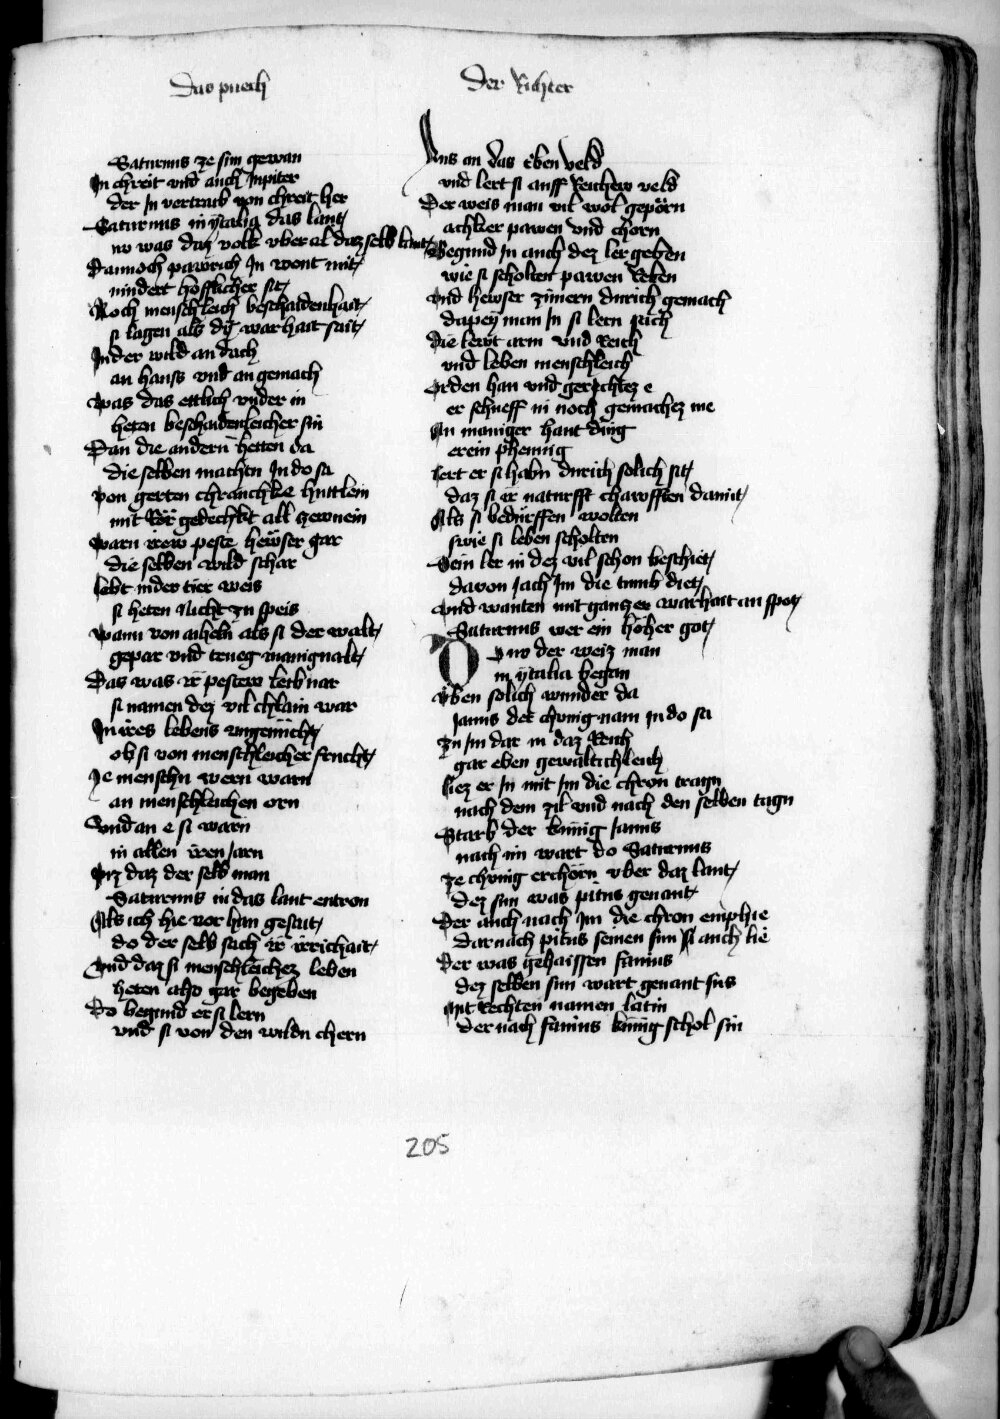 Das puech
Der Richter
Saturnus ze sun gewan
In chreit vnd auch Jupiter
der In vertraib von chreit her
Saturnus in ytalia das lant
nv was daz volk vber al daz selb lant
Dannoch pawrisch In wont mit
nindert hofflicher sit
Noch menschleich beschaidenhait
si lagen als dy warhait sait
In der wild an dach
an hauss vnd an gemach
Was das ettlich vnder in
heten beschaidenleicher sin
Dan die andern hetten da
die selben machtn In do sa
Von gerten chranchke huttlein
mit Rör gedechkt all gemein
Warn irew peste hewser gar
die selben wild schar
lebt in der tier weis
si heten nicht zu speis
Wann von aicheln als si der walt
gepar vnd trueg manigualt
Das was ir pestew leibnar
si namen dez vil chlain war
In ires lebens vngenucht
ob si von menschleicher frucht
Je menschn wern warn
an menschleichen orn
Vnd an e si warn
in allen iren jarn
Vnz daz der selb man
Saturnus in das lant entron
Als ich hie vor han gesait
do der selb sach ir irrichait
Vnd daz si menschleichez leben
heten also gar begeben
Do begund er si lern
vnd si von den wildn chern
Uns an das eben veld
vnd lert si auff Reichew veld
Der weis man vil wol geporn
achker pawen vnd chorn
Begund In auch dez ler geben
wie si scholten pawen Reben
Vnd hewser zimern durich gemach
dapey man In si lern sach
die lewt arm vnd Reich
vnd leben menschleich
Orden han vnd gerechtez e
er schueff in noch gemachez me
An maniger hant ding
erein phenning
lert er si habn durich solich sit
daz si ir naturfft chawfften damit
Als si bedurffen wolten
swie si leben scholten
Sein ler in dez vil schon beschiet
davon jach Im die tumb diet
Vnd wanten mit ganczer warhait an spot
Saturnus wer ein hoher got
Do nv der weiz man
in ytalia began
Vben solich wunder da
Janus der chunig nam in do sa
Zu Im dar in daz Reich
gar eben gewaltichleich
liez er In mit Im die chron tragn
nach dem zil vnd nach den selben tagn
Starb der kunig Janus
nach im wart do Saturnus
ze chunig erchorn vber daz lant
dez sun was pitus genant
Der auch nach Im die chron emphie
darnach pitus seinen sun si auch lie
Der was gehaissen faunus
dez selben sun wart genant sus
Mit Rechten namen latin
der nach faunus kunig schol sin
205